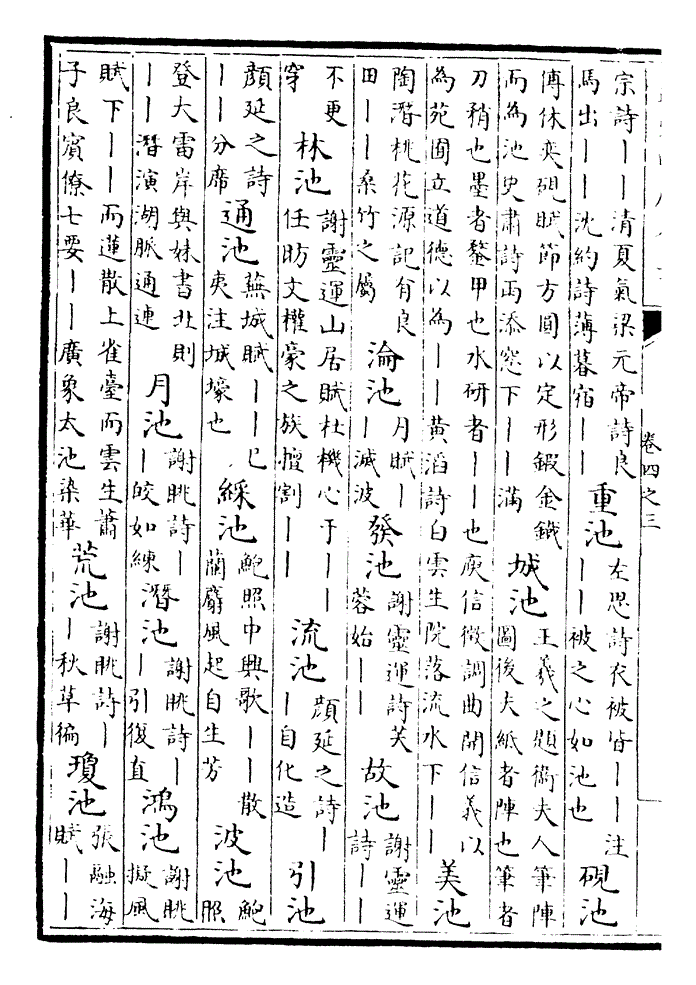 宗詩——清夏氣梁元帝詩良
馬出——沈約詩薄暮宿——
重池
左思詩衣被皆——注
——被之心如池也
硯池
傅休奕硯賦節方圓以定形鍛金鐵
而為池史肅詩雨添窓下——滿
城池
王羲之題衛夫人筆陣
圖後夫紙者陣也筆者
刀矟也墨者鍪甲也水研者——也庾信徵調曲開信義以
為苑囿立道德以為——黃滔詩白雲生院落流水下——
美池
陶潛桃花源記有良
田——桑竹之屬
淪池
月賦—
—滅波
發池
謝靈運詩芙
蓉始——
故池
謝靈運
詩——
不更
穿
林池
謝靈運山居賦杜機心于——
任昉文權豪之族擅割——
流池
顔延之詩—
—自化造
引池
顔延之詩
——分席
通池
蕪城賦——已
夷注城壕也
綵池
鮑照中興歌——散
蘭麝風起自生芳
波池
鮑
照
登大雷岸與妹書北則
——潛演湖脈通連
月池
謝眺詩—
—皎如練
潛池
謝眺詩—
—引復直
鴻池
謝眺
擬風
賦下——而蓮散上雀臺而雲生蕭
子良賓僚七要——廣象太池染華
荒池
謝眺詩—
—秋草徧
瓊池
張融海
賦——
卷四之三